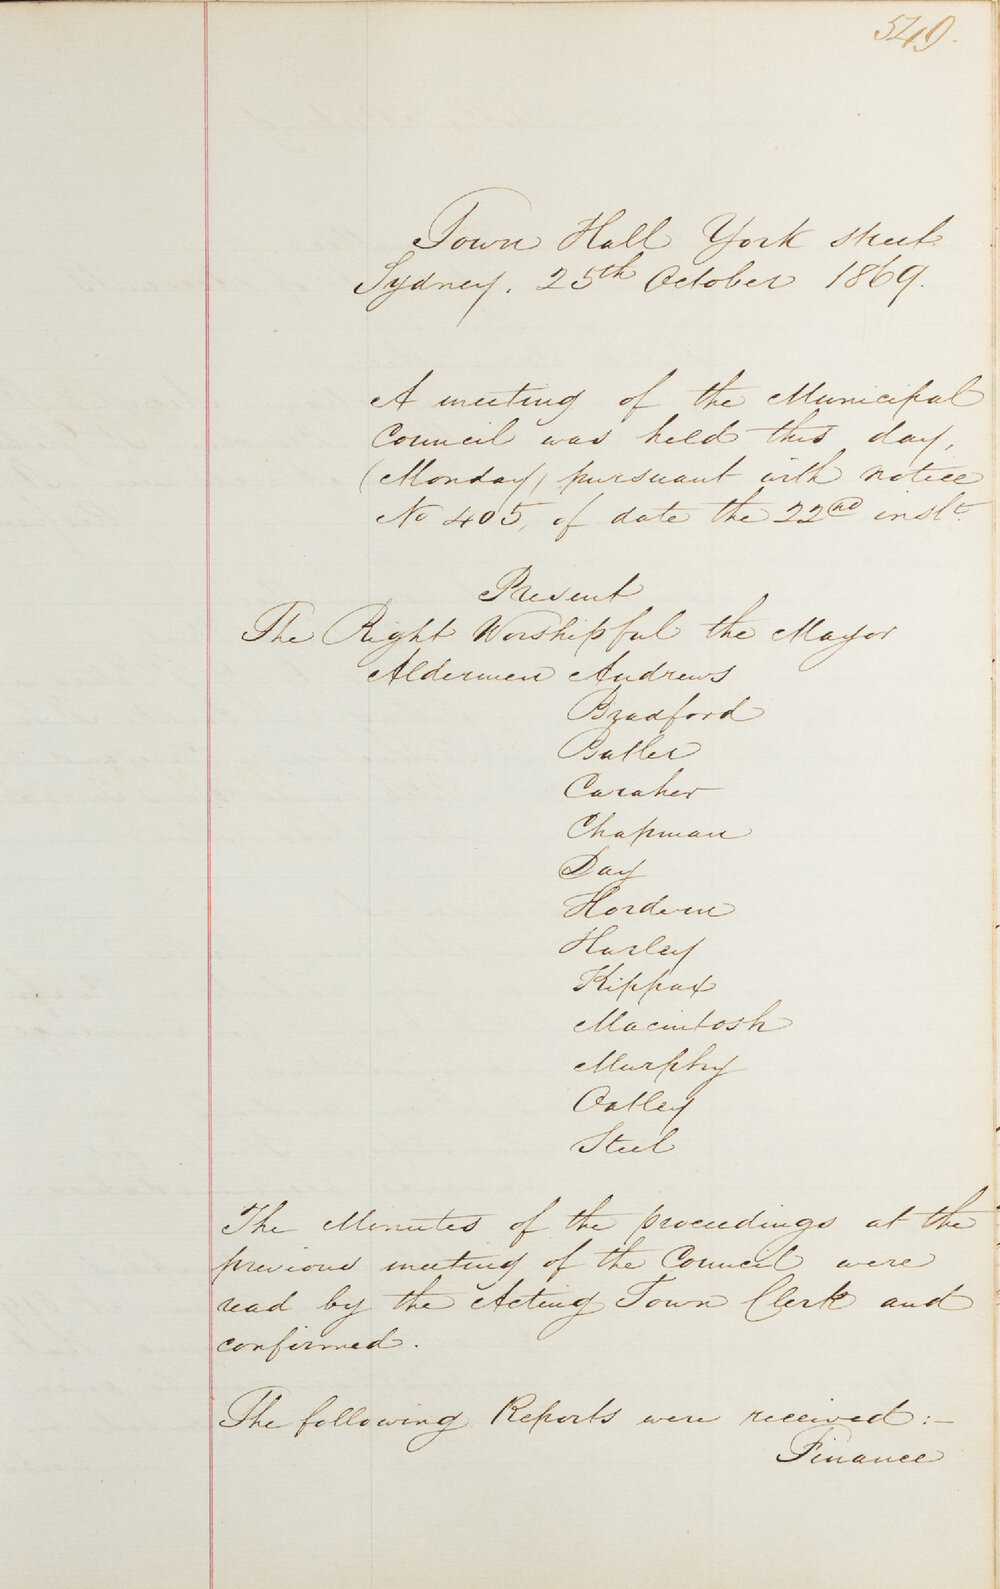 549.
Town Hall York street
Sydney, 25th October 1869.
A meeting of the Municipal
Council was held this day,
(Monday) pursuant with notice
No 405, of date the 22nd inst.
Present
The Right Worshipful the Mayor
Aldermen Andrews
Bradford
Butler
Caraher
Chapman
Day
Hordern
Hurley
Kippax
Macintosh
Murphy
Oatley
Steel
The Minutes of the proceedings at the
previous meeting of the Council were
read by the Acting Town Clerk and
confirmed.
The following Reports were received:—
Finance